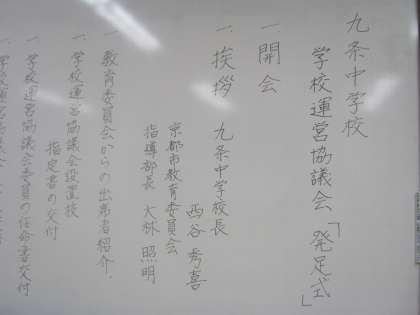 九条中学校
学校運営協議会「発足式」
一 開会
一 挨拶 九条中学校長
西谷 秀喜
京都市教育委員会
指導部長 大林 照明
一 教育委員会からの出席者紹介
一 学校運営協議会設置校
指定書の交付
一 学校運営協議会委員の任命書交付